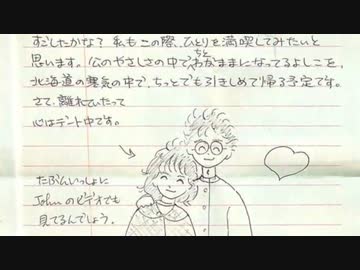 すごしたかな? 私もこの際、ひとりを満喫してみたいと
思います。公のやさしさの中でちとわがままになってるよしこを、
北海道の寒気の中で、ちっとでも引きしめて帰る予定です。
さて、離れていたって
心はデート中です。
たぶんいっしょに
Johnのビデオでも
見てるんでしょう。